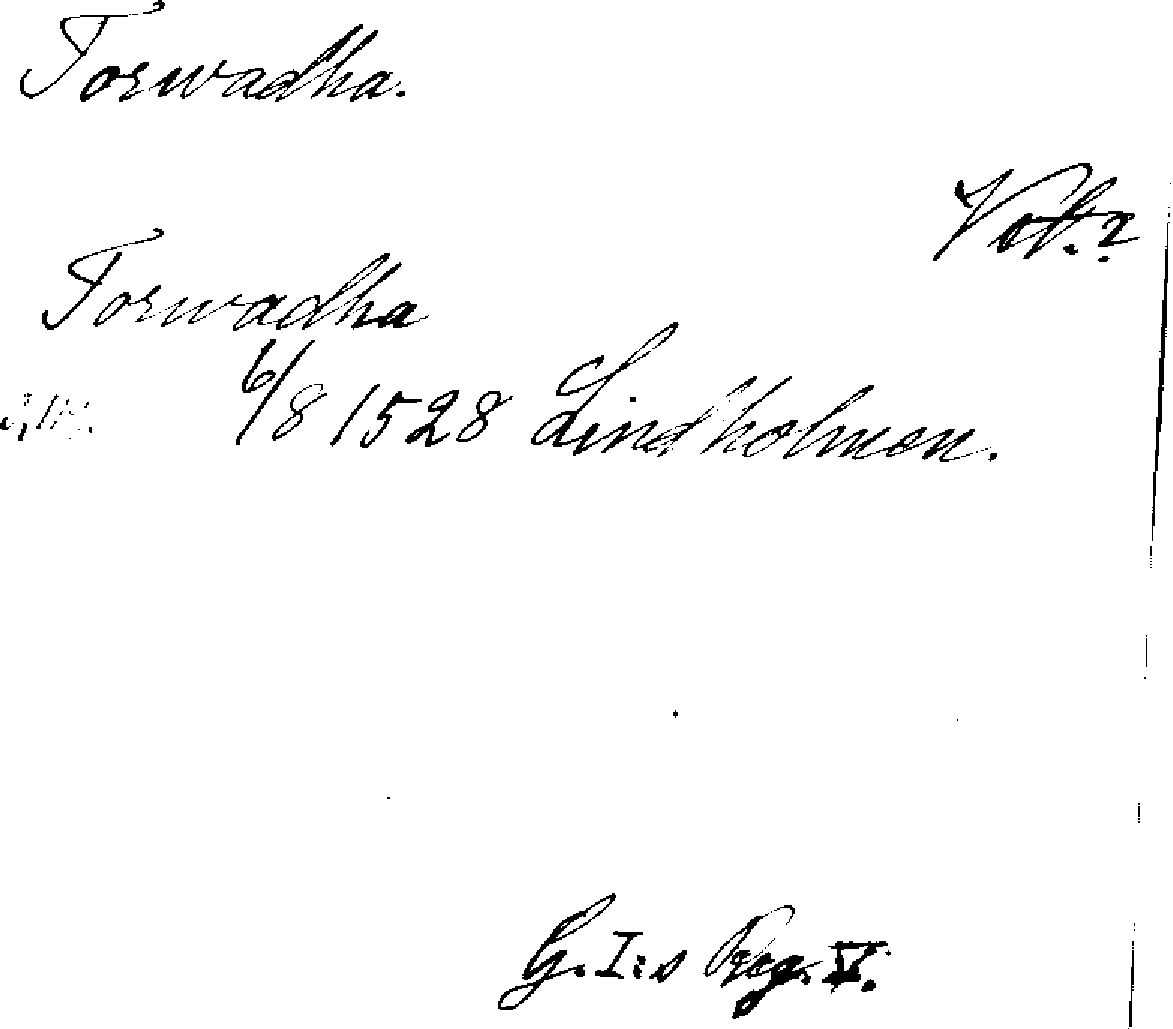 Torwadha.
Vätt.?
Torwadha
6/8 1528 Lindholmen.
G. I:s Reg. V.